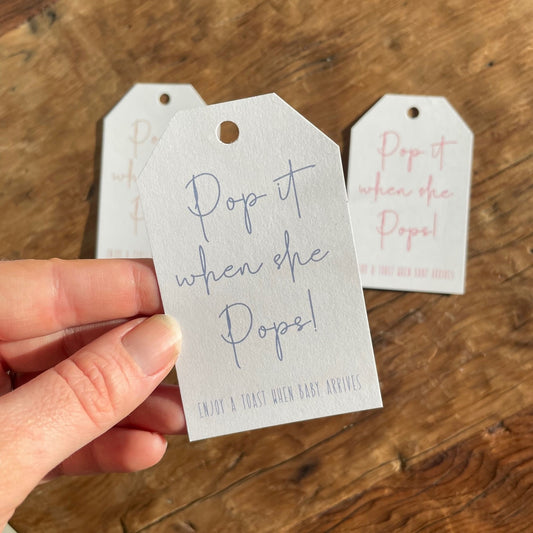 Pop it
when she
Pops!
ENJOY A TOAST WHEN BABY ARRIVES
Po
wh
P
ENJOY A
Pop it
when she
Pops!
A TOAST WHEN BABY ARRIVES